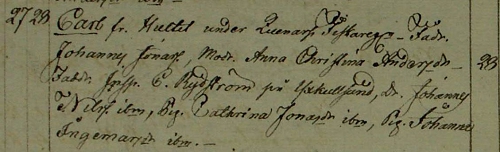 27 28 Carl fr. Hultet under Quenars Fästareg. - Fadr.
Johannes Jonass, Modr. Anna Christina Andersdr -
Faddr. Insp. C. Rydström på Ixkulsund, dr. Johannes 28
Nilss. ibm, Pig. Cathrina Jonasdr ibm, Pig. Johanna
Ingemarsdr ibm. -